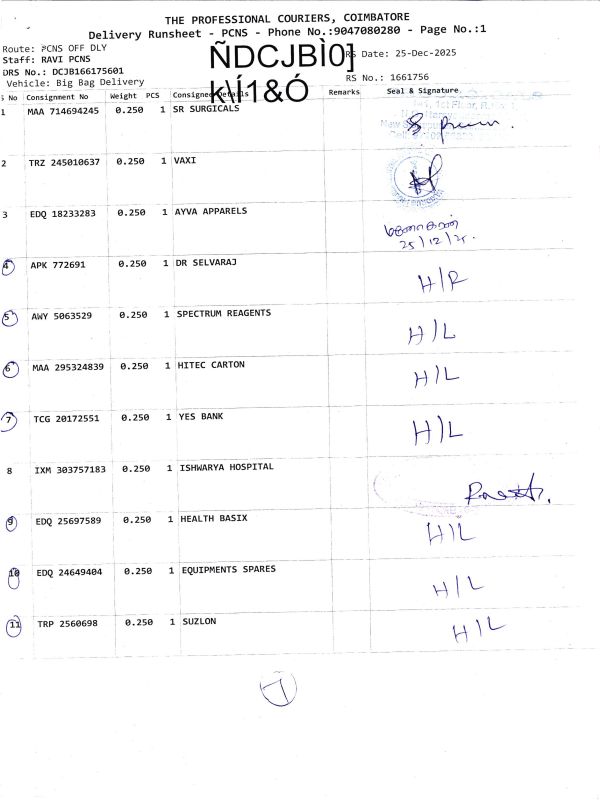 THE PROFESSIONAL COURIERS, COIMBATORE
Delivery Runsheet - PCNS - Phone No.:9047080280 - Page No.:1
Route: PCNS OFF DLY
ÑDCJBÌ0]
RS Date: 25-Dec-2025
Staff: RAVI PCNS
DRS No.: DCJB166175601
RS No.: 1661756
Vehicle: Big Bag Delivery
k\Í1&Ó
S No Consignment No Weight PCS Consignee Details Remarks Seal & Signature
1 MAA 714694245 0.250 1 SR SURGICALS
2 TRZ 245010637 0.250 1 VAXI
3 EDQ 18233283 0.250 1 AYVA APPARELS
25/12/25.
4 APK 772691 0.250 1 DR SELVARAJ H/R
5 AWY 5063529 0.250 1 SPECTRUM REAGENTS H/L
6 MAA 295324839 0.250 1 HITEC CARTON H/L
7 TCG 20172551 0.250 1 YES BANK H/L
8 IXM 303757183 0.250 1 ISHWARYA HOSPITAL
9 EDQ 25697589 0.250 1 HEALTH BASIX H/L
10 EDQ 24649404 0.250 1 EQUIPMENTS SPARES H/L
11 TRP 2560698 0.250 1 SUZLON H/L
7